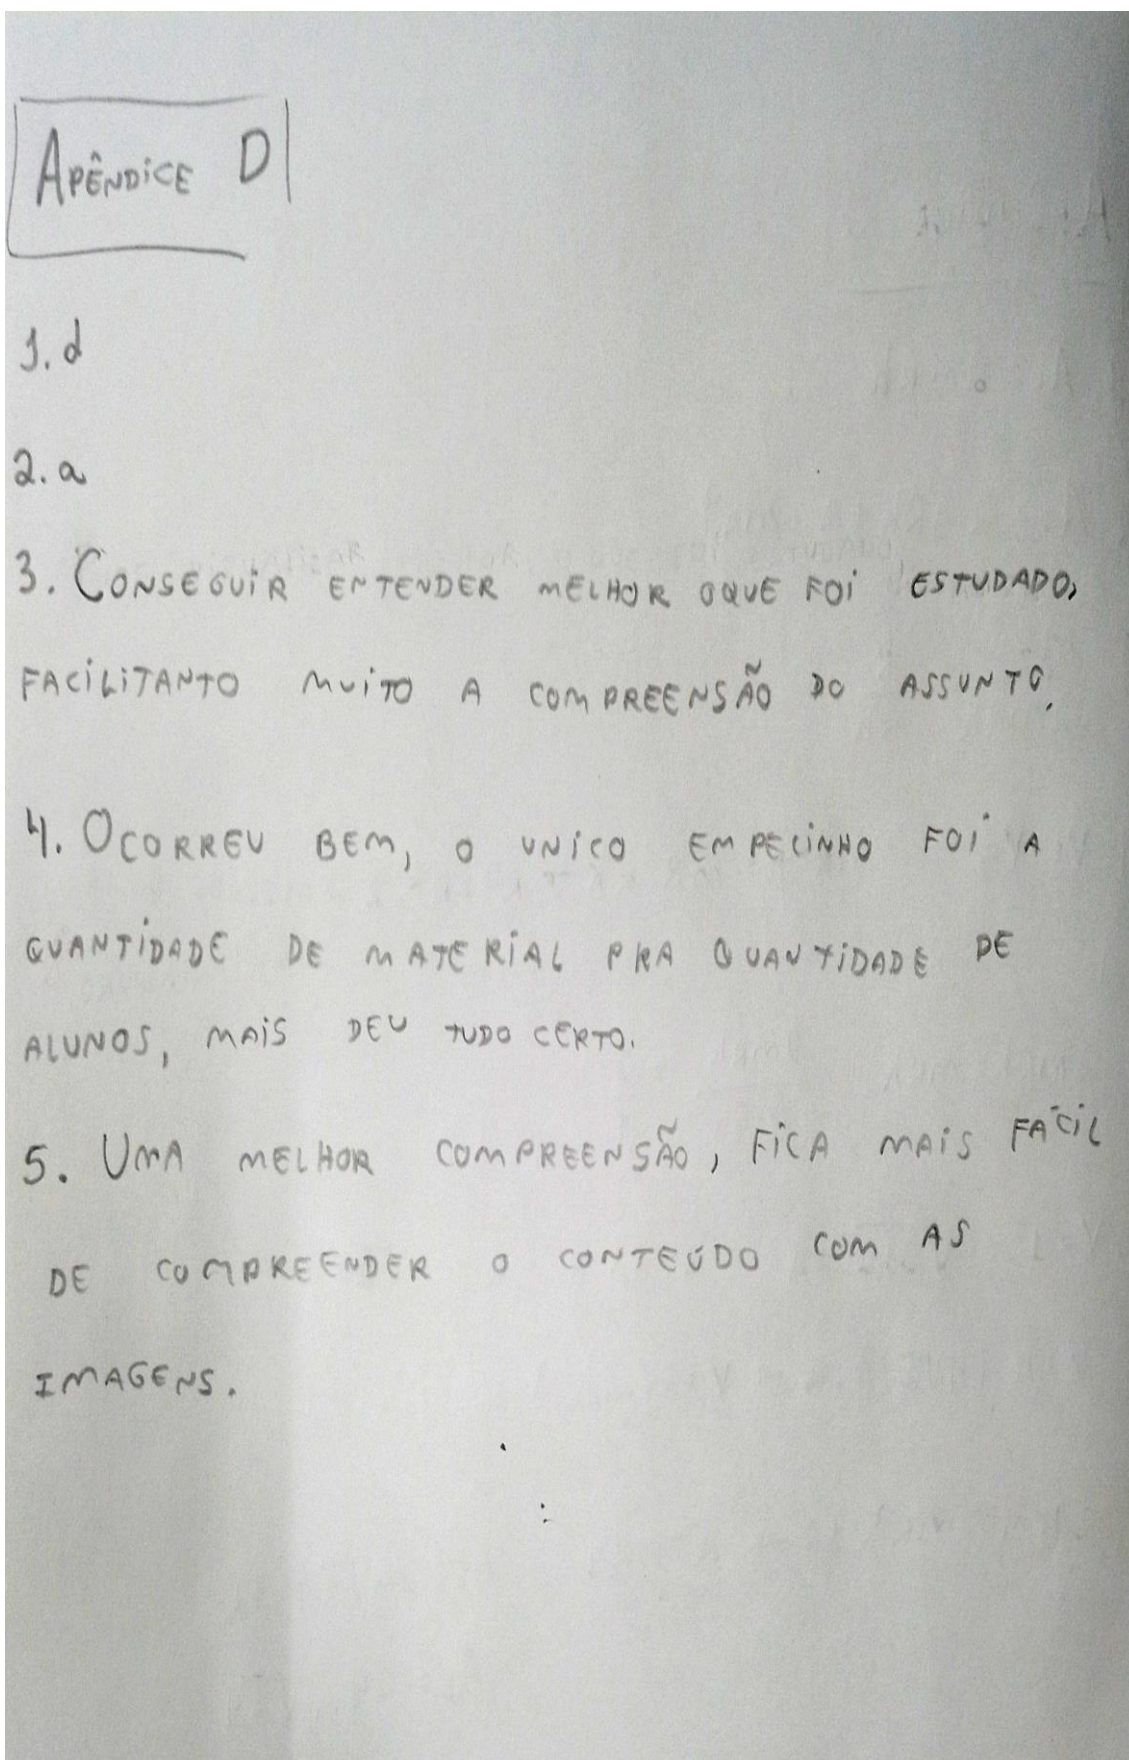 APÊNDICE D
1. d
2. a
3. CONSEGUIR ENTENDER MELHOR OQUE FOI ESTUDADO,
FACILITANTO MUITO A COMPREENSÃO DO ASSUNTO.
4. OCORREU BEM, O UNICO EMPECINHO FOI A
QUANTIDADE DE MATERIAL PRA QUANTIDADE DE
ALUNOS, MAIS DEU TUDO CERTO.
5. UMA MELHOR COMPREENSÃO, FICA MAIS FÁCIL
DE COMPREENDER O CONTEÚDO COM AS
IMAGENS.